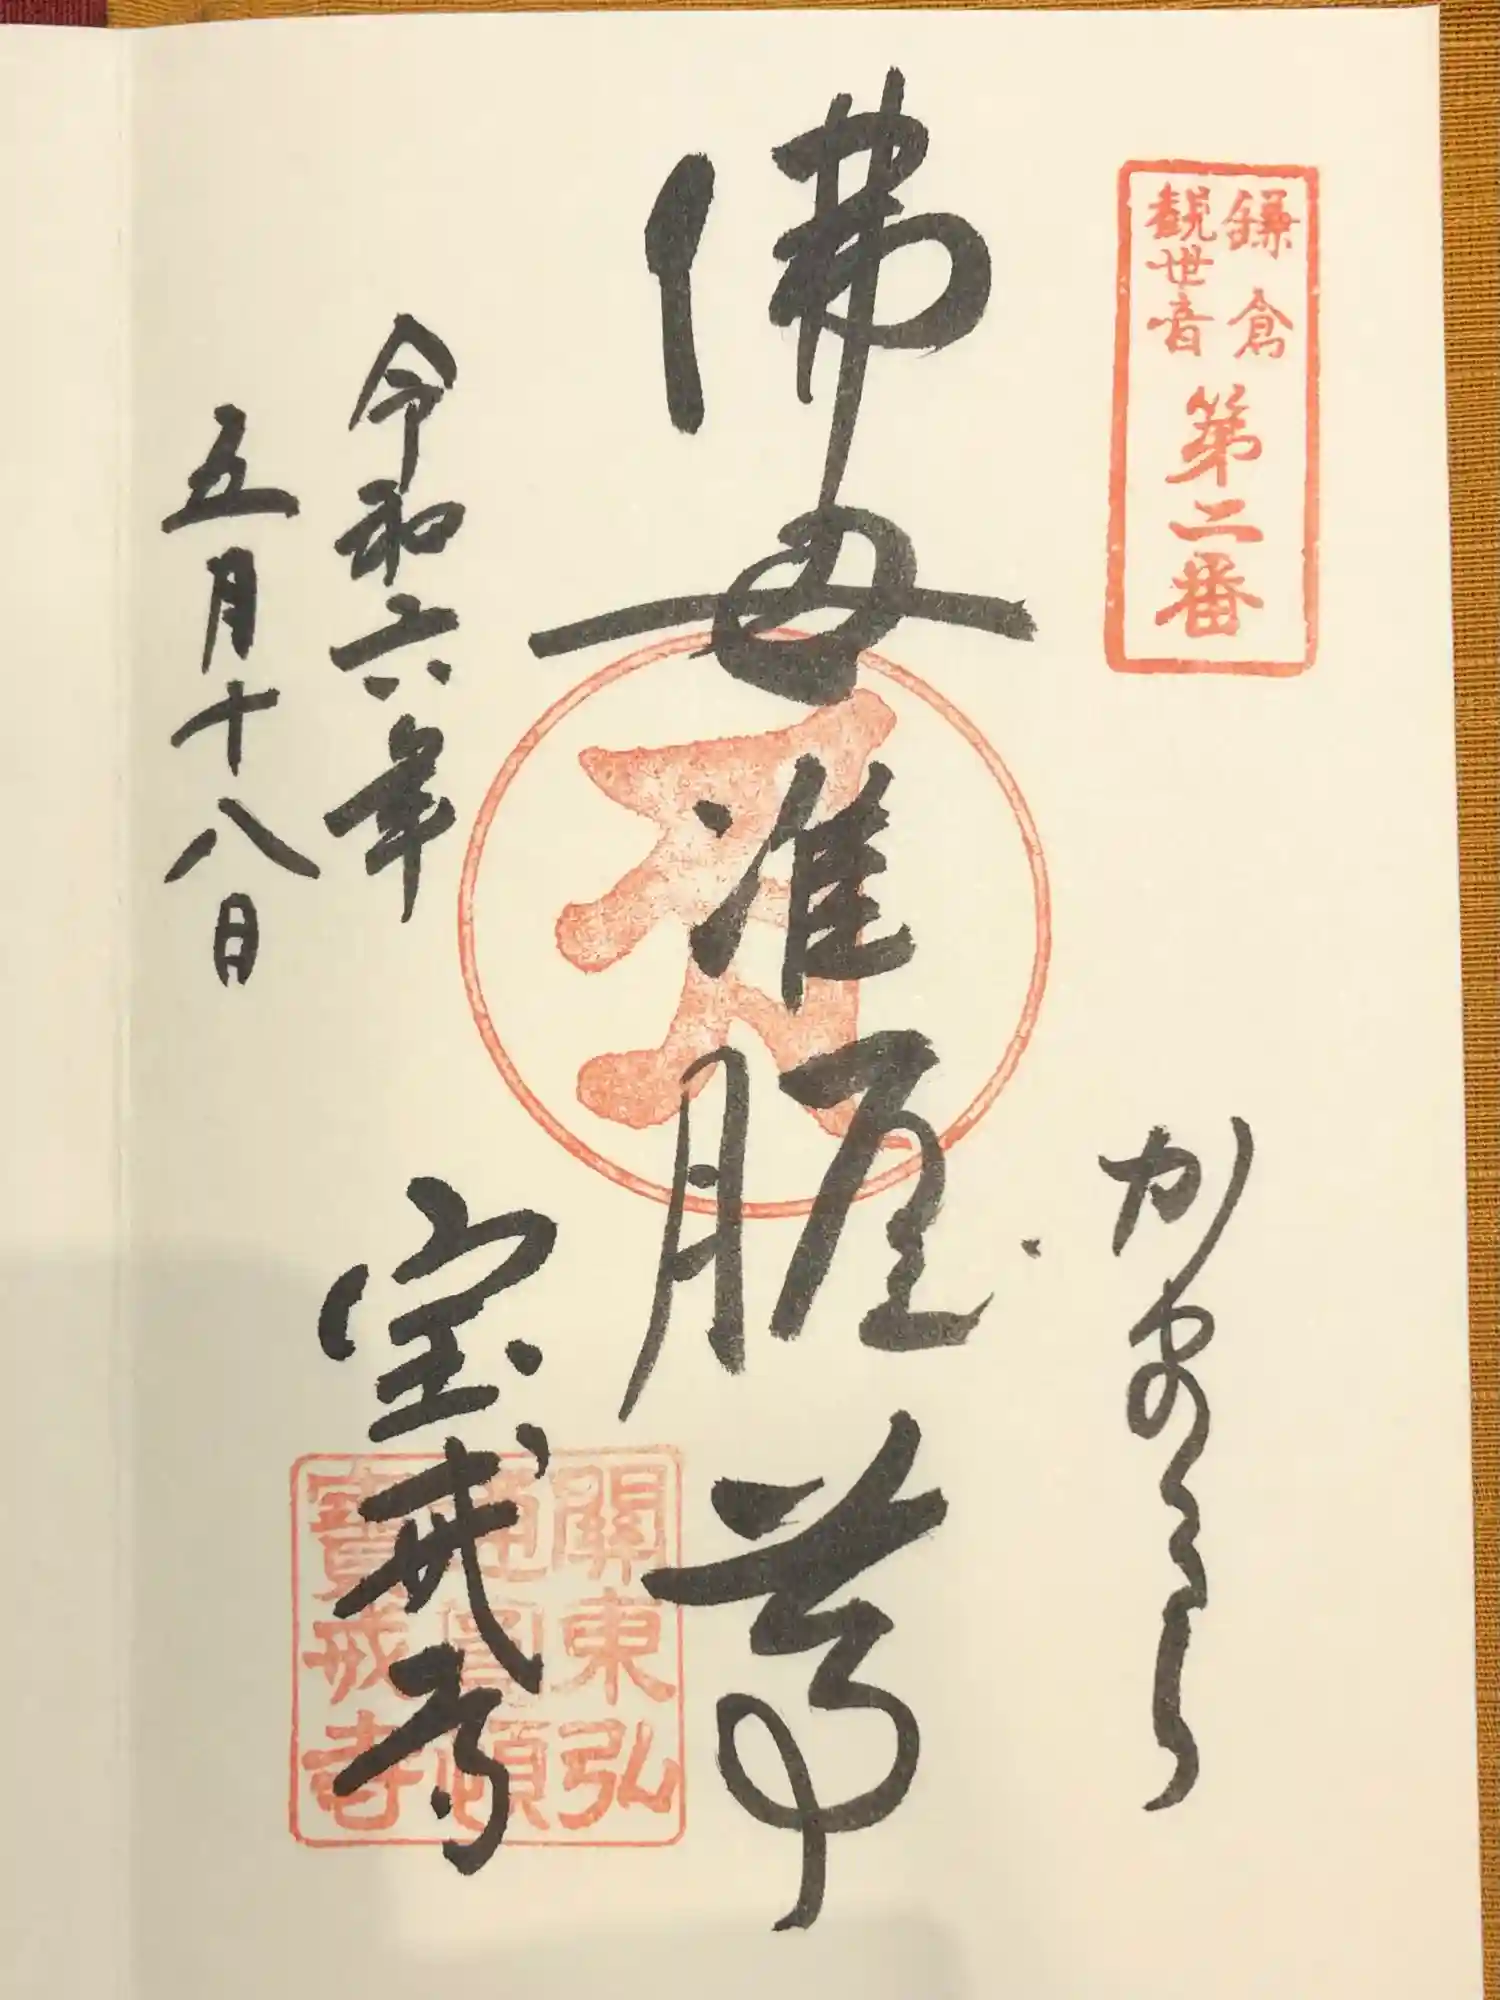 鎌倉
観世音
第二番
かまくら
佛母准胝尊
令和六年
五月十八日
宝戒寺
關東弘
通圓頓
寶戒寺